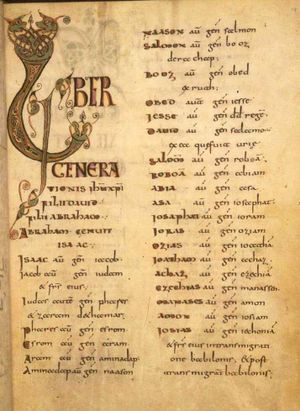 LIBER
GENERA
TIONIS IHUXPI
FILII DAVID
FILII ABRAHAM
ABRAHAM GENUIT
ISAAC
ISAAC aũ gen iacob
Iacob aũ gen iudam
& fr̃s eius
Iudas aut gen phares
& zaram dethamar
Phares aũ gen esrom
Esrom aũ gen aram
Aram aũ gen aminadap
Aminadap aũ gen naason
NAASON aũ gen salmon
SALMON aũ gen booz
derachap
BOOZ aũ gen obed
exruth
OBED aut gen iesse
IESSE aũ gen dd rege
DAVID aũ gen salomo
exea que fuit urie
SALOM aũ gen roboa
ROBOA aũ gen abiam
ABIA aũ gen asa
ASA aũ gen iosaphat
IOSAPHAT aũ gen ioram
IORAS aũ gen oziam
OZIAS aũ gen
IOATHAM aũ gen achaz
ACHAZ aũ gen ezechia
EZECHIAS aũ gen manassen
MANASSES aũ gen amon
AMON aũ gen iosiam
IOSIAS aũ gen iechonia
& fr̃s eius intransmigrati
one babilonis, & post
transmigrat babilonis